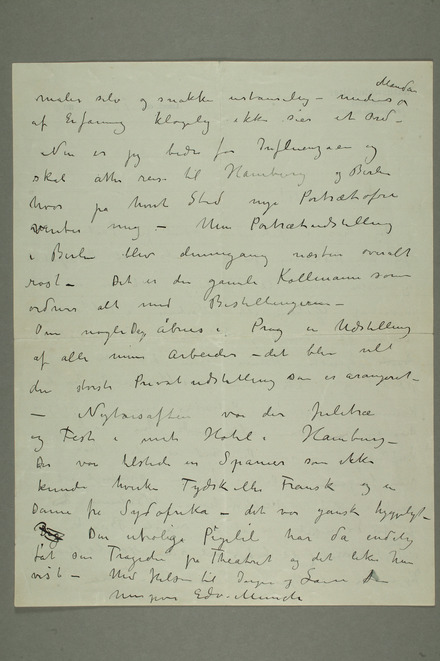 Mandan
maler selv og snakker ustanselig – medens
af Erfaring klogelig ikke sier et Ord –
Nu er jeg bedre for Influenzaen og
skal atter reise til Hamburg og Berlin
hvor på hvert Sted nye Portrætofre
venter mig – Min Portrætudstilling
i Berlin blev denne gang næsten overalt
rost – Det er den gamle Kollmann som
ordner alt med Bestillingerne –
Om nogle Dag åbnes i Prag en Udstilling
af alle mine Arbeider – det blir vel
den største Privatudstilling som er arangeret –
– Nytårsaften var der Juletræ
og Fest i mit Hotel i Hamburg –
Der var tilstede en Spanier som ikke
kunde hverken Tydsk eller Fransk og en
Dame fra Sydafrika – det var ganske hyggeligt –
Den urolige har da endelig
fåt sin Tragedie på Theatret og det liker han
vist – Med Hilsen til og
Edv. Munch